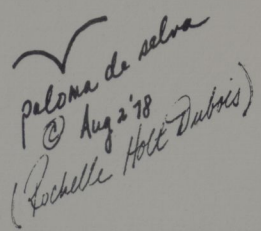 paloma de selva
© Aug 2 '78
(Rochelle Holt Dubois)